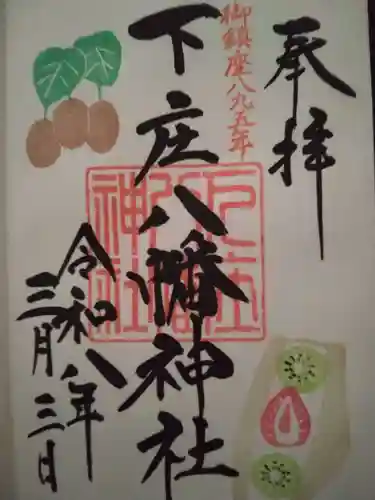 奉拝
御鎮座八九五年
下庄八幡神社
下庄八幡神社
令和八年
三月三日